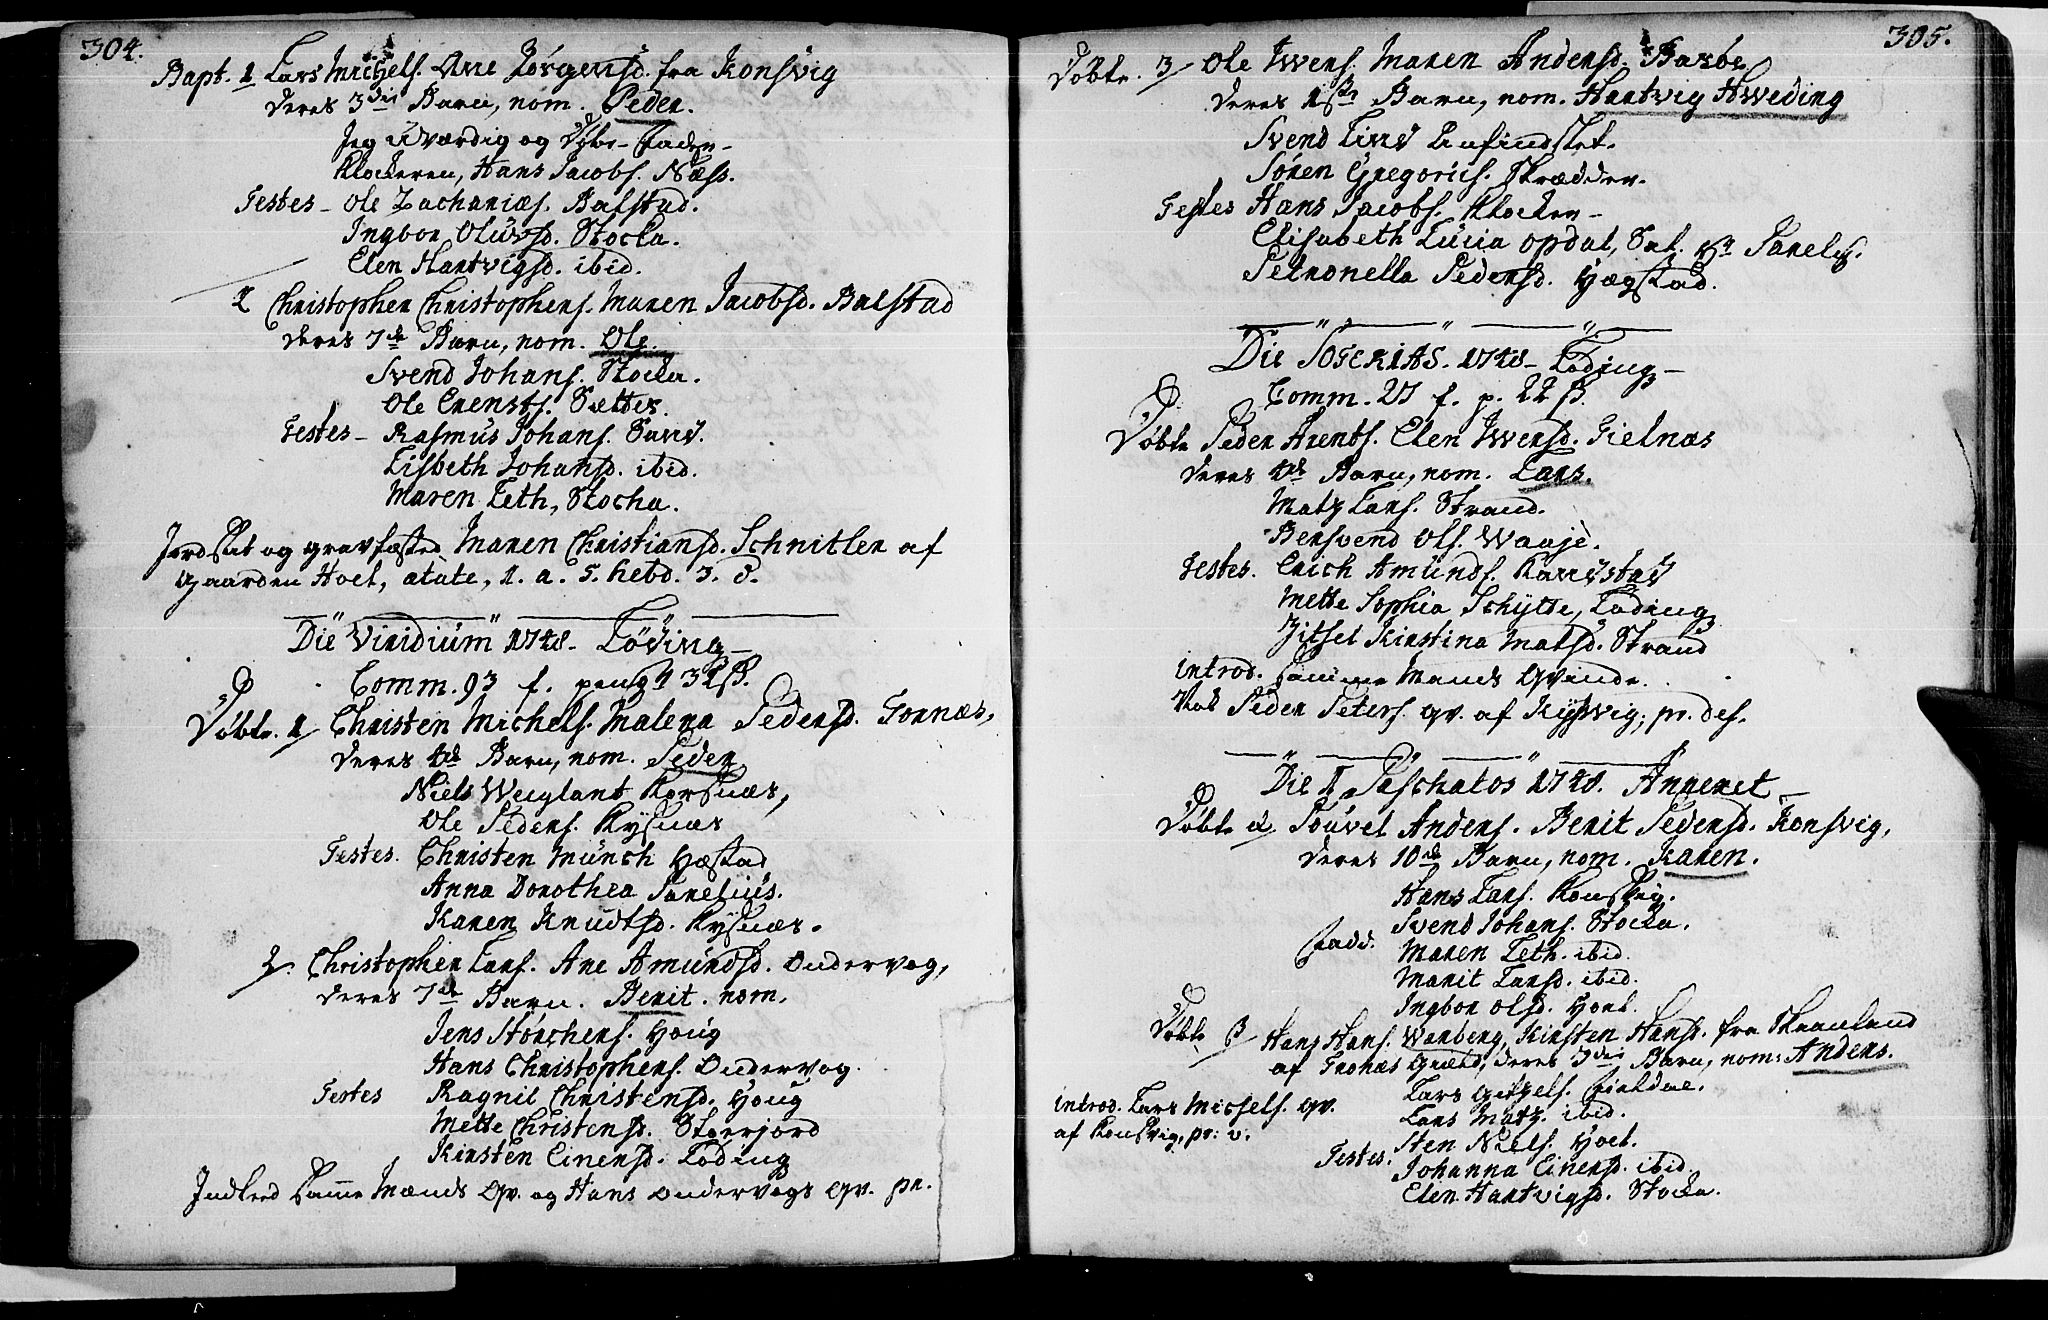 304.
Bapt. 1 Lars Michels. Ane Jørgensd. fra Konsvig
deres 3die Barn, nom. Peder.
Jeg uværdig og Døbe-Fader-
Klockeren, Hans Jacobs. Næss.
Testes - Ole Zachariæs. Balstad.
Ingbor Oluvsd. Stocka.
Elen Hartvigsd. ibid.
2 Christopher Christophers. Maren Jacobsd. Balstad
deres 7de Barn, nom. Ole.
Svend Johans. Stocka.
Ole Erensts. Sætter.
Testes - Rasmus Johans. Sand.
Lisbeth Johansd. ibid.
Maren Leth, Stocka.
Jordsat og gravfæsted Maren Christiansd. Schnitler af
gaarden Hoel, ætate, 1. a. 5. hebd. 3. d.
Die Viridium 1748. Løding -
Comm. 93 f. peng
Døbte. 1/ Christen Michels. Malena Pedersd. Fornæs,
deres 4de Barn, nom. Peder
Niels Weiglant Korsnæs,
Ole Peders. Rysnæs
Testes. Christen Münch Hæstad
Anna Dorothea Parelius.
Karen Knudtsd. Rysnæs.
2. Christopher Lars. Ane Amundsd. Ondervog,
deres 7de Barn. Berit. nom.
Jens Størchers. Houg
Hans Christophers. Ondervog.
Testes Ragnil Christensd. Houg
Mette Christensd. Stoerjord
Kirsten Einersd. Loding
Indleed samme Mænds qv. og Hans Ondervogs qv. pr.
305.
Døbte. 3/ Ole Iwers. Maren Andersd. Barøe
deres 1ste Barn, nom. Hartvig Hweding
Svend Lind
Søren Gregoriis. Skrædder.
Testes Hans Jacobs. Klocker -
Elisabeth Lucia Opdal, Sal. Hr Parelii.
Petronella Pedersd. Hægstad.
Die SOTERIAS. 1748 - Loding -
Comm. 27 f. p. 22 ß.
Døbte Peder Arents. Elen Iwersd. Fielnæs
deres 4de Barn, nom. Lars.
Matz Lars. Strand.
Bersvend Ols. Waaje.
Testes. Erich Amunds. Kandstad
Mette Sophia Schytte, Loding
Zitsel Kirstina Matsd. Strand
introd. samme Mands Qvinde.
Peder Peters. qv. af Kysvig, pr. des.
Die 1 Paschatos 1748. Anneret -
Døbte a/ Pouvel Anders. Berit Pedersd. Konsvig,
deres 10de Barn, nom. Karen.
Hans Lars. Konsvig.
Svend Johans. Stocka.
Fadd. Maren Leth. ibid.
Marit Larsd. ibid.
Ingbor Olsd. Hoel.
Døbte ß/ Hans Hans. Warberg, Kirsten Hansd. fra Skaanland
af Trones Gield, deres 3die Barn, nom: Anders.
Lars
Lars Matz. ibid.
introd. Lars Michels. qv.
af Konsvig, pr: v.
Sten Niels. Hoel.
Testes. Johanna Einersd. ibid.
Elen Hartvigsd. Stocka.